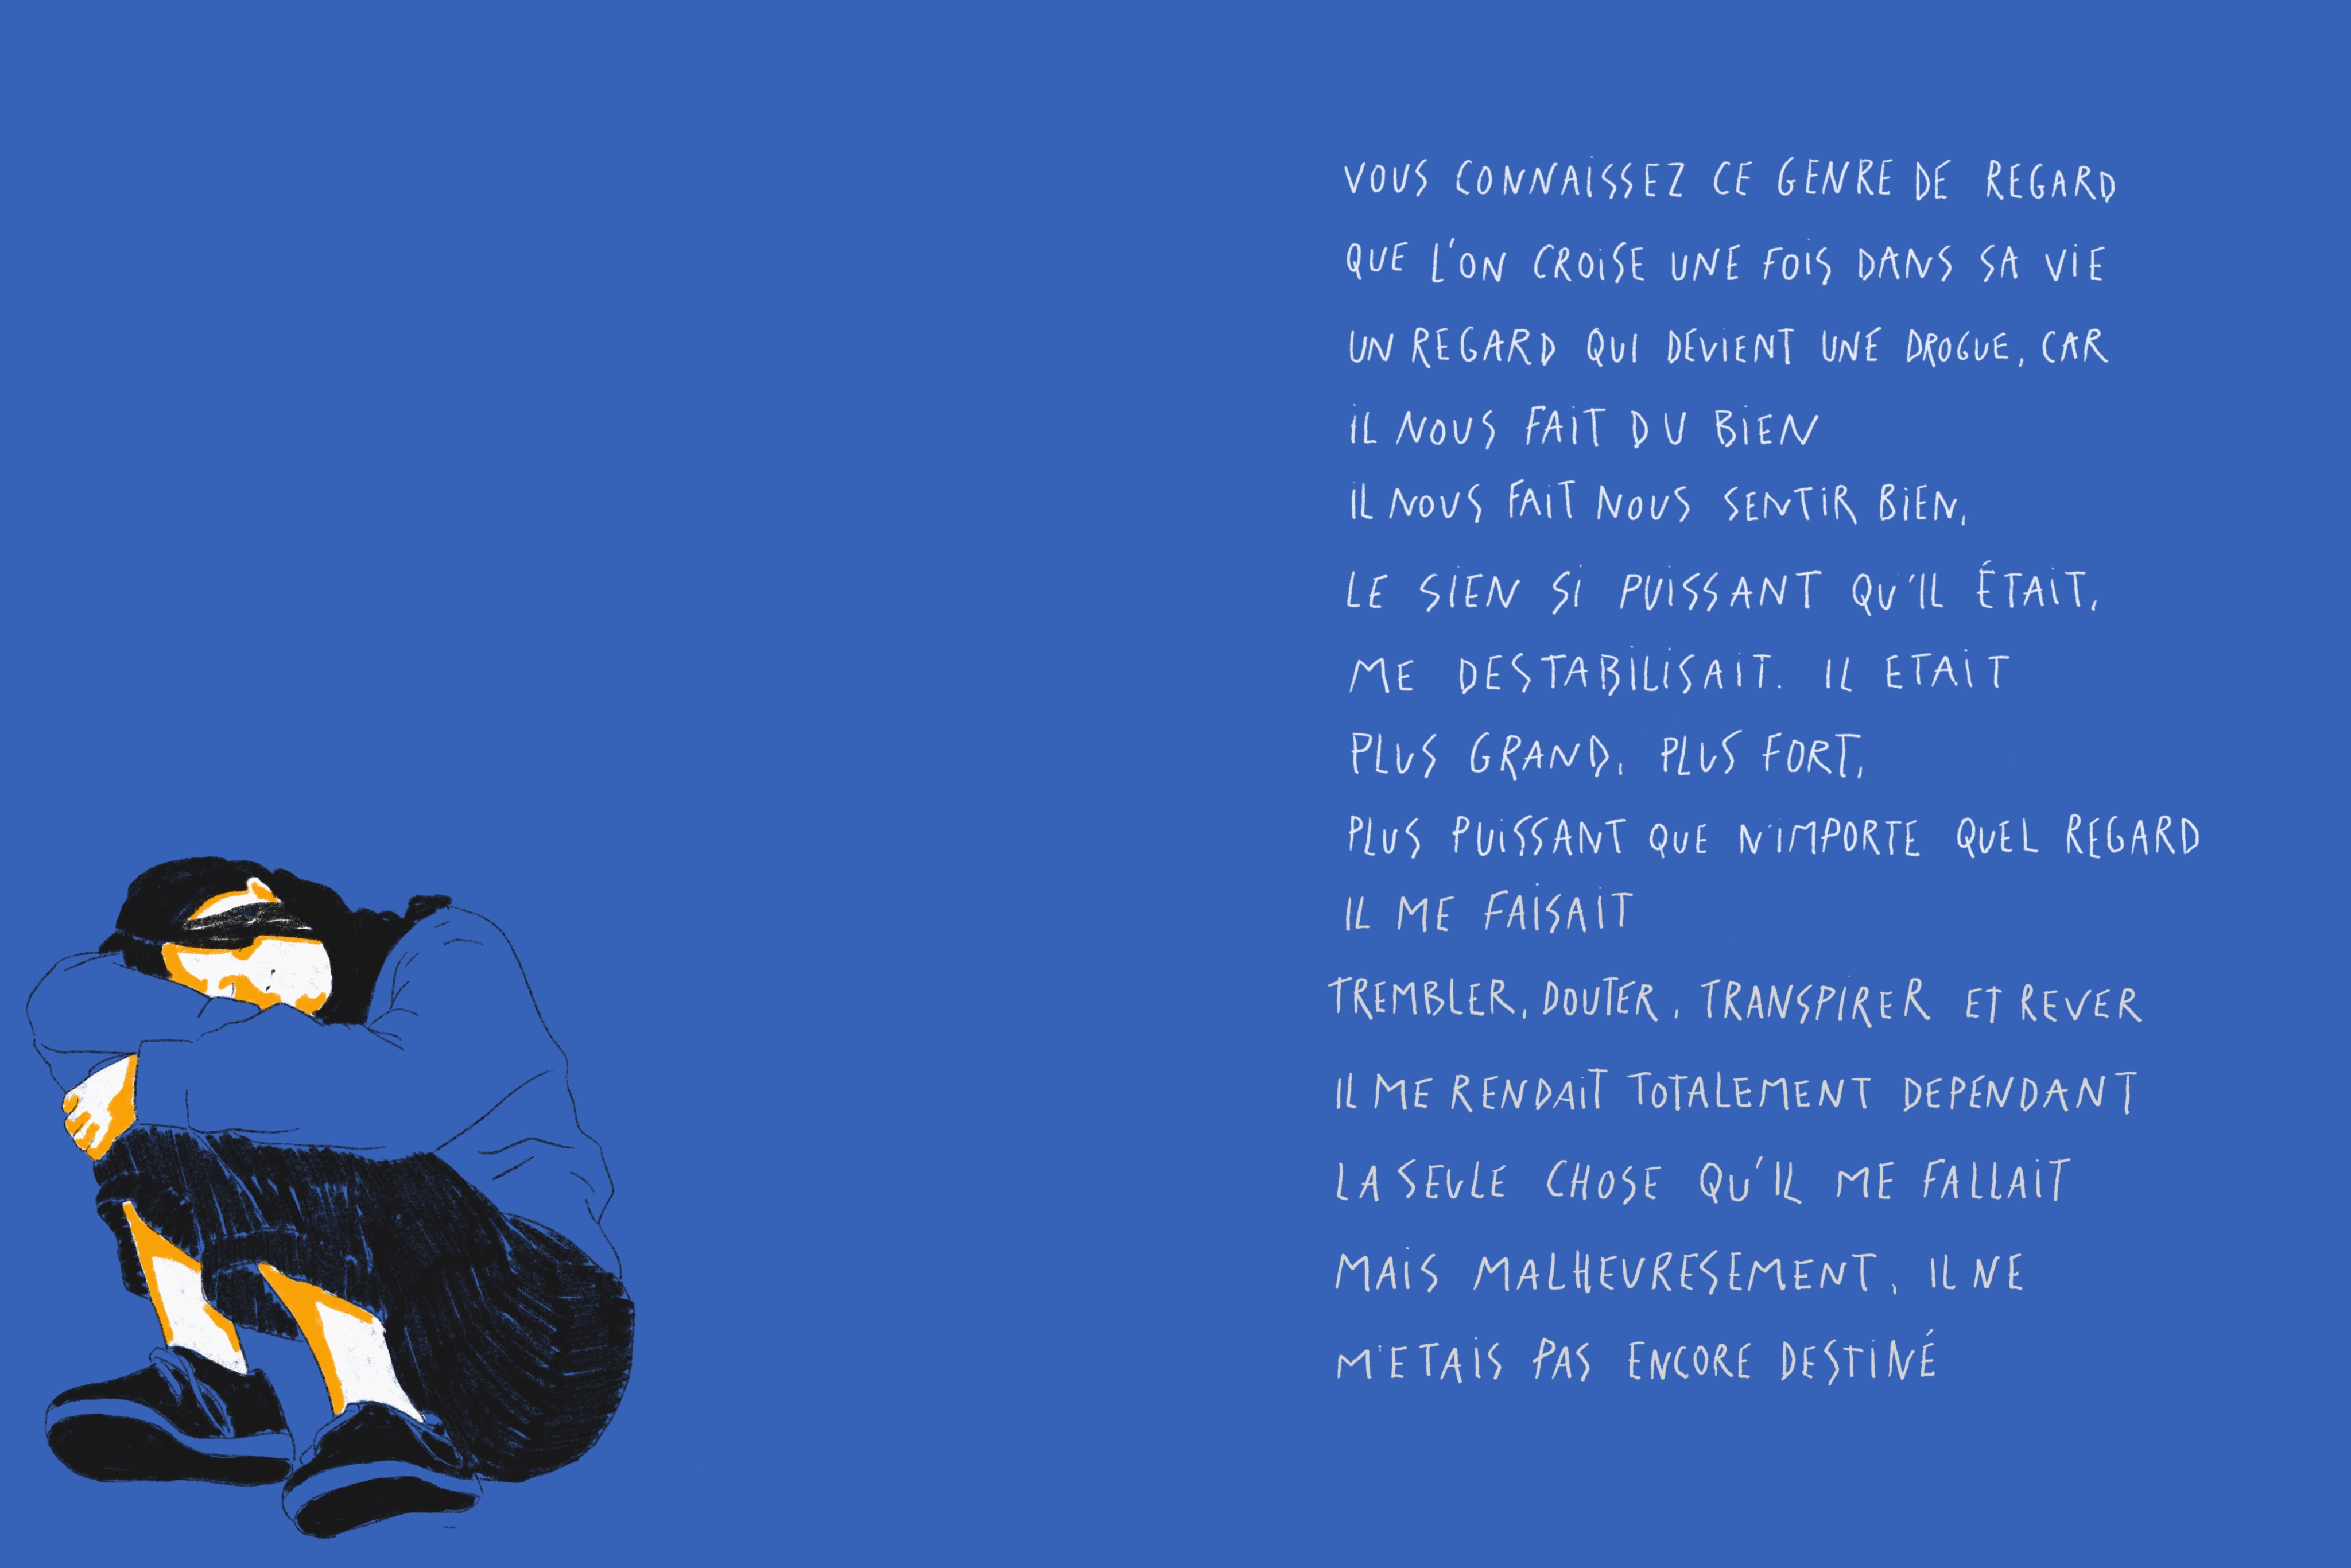 VOUS CONNAISSEZ CE GENRE DE REGARD
QUE L'ON CROISE UNE FOIS DANS SA VIE
UN REGARD QUI DEVIENT UNE DROGUE, CAR
IL NOUS FAIT DU BIEN
IL NOUS FAIT NOUS SENTIR BIEN,
LE SIEN SI PUISSANT QU'IL ÉTAIT,
ME DESTABILISAIT. IL ETAIT
PLUS GRAND, PLUS FORT,
PLUS PUISSANT QUE N'IMPORTE QUEL REGARD
IL ME FAISAIT
TREMBLER, DOUTER, TRANSPIRER ET REVER
IL ME RENDAIT TOTALEMENT DEPENDANT
LA SEULE CHOSE QU'IL ME FALLAIT
MAIS MALHEURESEMENT, IL NE
M'ETAIS PAS ENCORE DESTINÉ